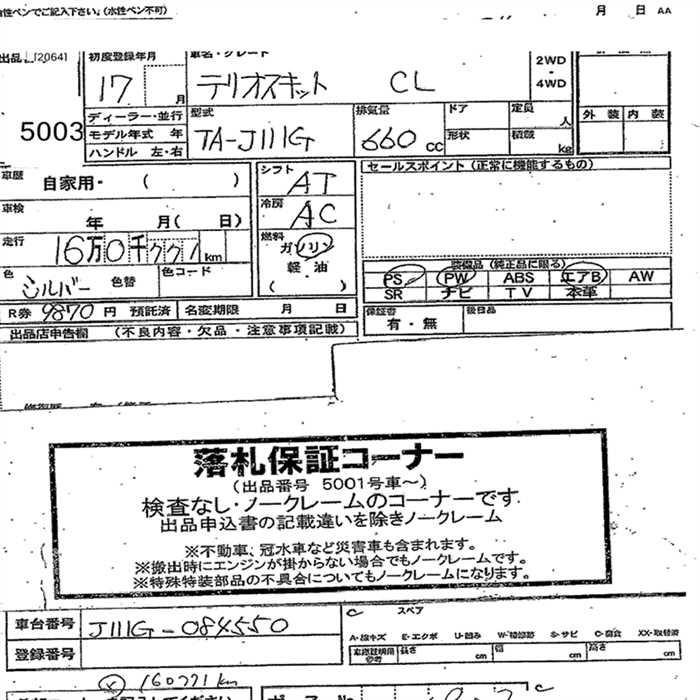 性ペンでご記入下さい。(水性ペン不可) 月 日 AA
出品 [2064] 初度登録年月 車名・グレード 2WD・4WD
17 月 テリオスキット CL
5003 ディーラー・並行 型式 排気量 ドア 定員 人 外装 内装
モデル年式 年 TA-J111G 660 CC 形状 積載 kg
ハンドル 左・右
車歴 自家用・( ) シフト AT セールスポイント (正常に機能するもの)
車検 年 月( 日) 冷房 AC
走行 16万0千771 km 燃料 ガソリン
軽・油
( )
色 シルバー 色替 色コード
装備品 (純正品に限る)
PS PW ABS エアB AW
SR ナビ TV 本革
R券 9870 円 預託済 名変期限 月 日 保証書 有・無 後日品
出品店申告欄 (不良内容・欠品・注意事項記載)
落札保証コーナー
(出品番号 5001号車~)
検査なし・ノークレームのコーナーです
出品申込書の記載違いを除きノークレーム
※不動車、冠水車など災害車も含まれます。
※搬出時にエンジンが掛からない場合でもノークレームです。
※特殊特装部品の不具合についてもノークレームになります。
車台番号 J111G-084550 スペア
A-線キズ E-エクボ U-凹み W-補修跡 S-サビ C-腐食 XX-取替済
登録番号 長さ cm 幅 cm 高さ cm
160771 km